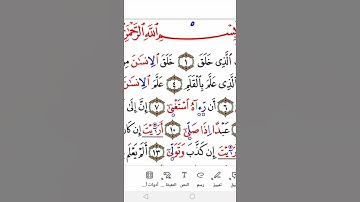 ـسْمِ ٱللَّهِ ٱلرَّحْمَٰنِ
ٱلَّذِى خَلَقَ ١ خَلَقَ ٱلْإِنسَٰنَ مِ
ـَّذِى عَلَّمَ بِٱلْقَلَمِ ٤ عَلَّمَ ٱلْإِنسَٰنَ
٦ أَن رَّءَاهُ ٱسْتَغْنَىٰٓ ٧ إِنَّ إِلَىٰ
عَبْدًا إِذَا صَلَّىٰٓ ١٠ أَرَءَيْتَ إِن كَا
أَرَءَيْتَ إِن كَذَّبَ وَتَوَلَّىٰٓ ١٣ أَلَمْ يَعْلَم
تمييز رسم النص أدوات أ...